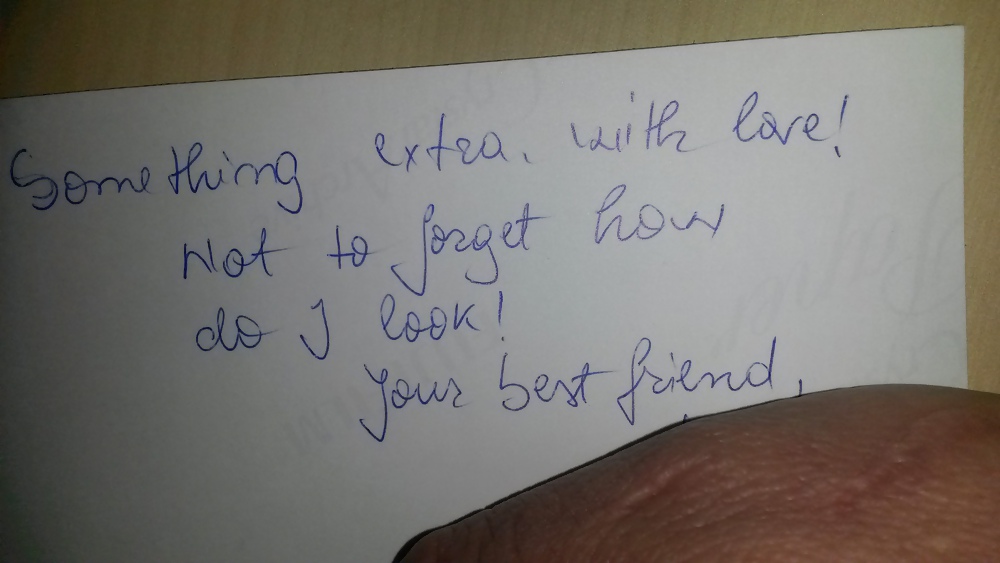 Something extra. with love!
Not to forget how
do I look!
Your best friend,